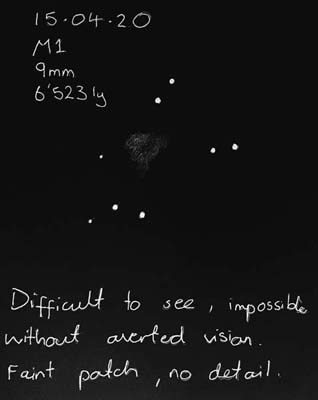 15.04.20
M1
9mm
6'523 ly
Difficult to see, impossible
without averted vision.
Faint patch, no detail.